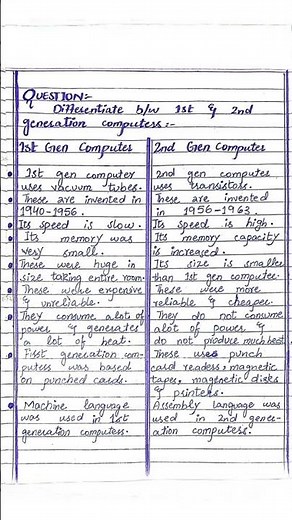 QUESTION:-
Differentiate b/w 1st & 2nd
generation computers:-
1st Gen Computer
1st gen computer
uses vacuum tubes.
These are invented in
1940-1956.
Its speed is slow.
Its memory was
very small.
These were huge in
size taking entire room.
These were expensive
& unreliable.
They consume alot of
power & generates
a lot of heat.
First generation com-
puters was based
on punched cards.
Machine language
was used in 1st
generation computers.
2nd Gen Computer
2nd gen computer
uses transistors.
These are invented
in 1956-1963.
Its speed is high.
Its memory capacity
is increased.
Its size is smaller
than 1st gen computer.
These were more
reliable & cheaper.
They do not consume
alot of power &
do not produce much heat.
These used punch
card readers, magnetic
tapes, magenetic disks
& printers.
Assembly language was
used in 2nd gener-
ation computers.